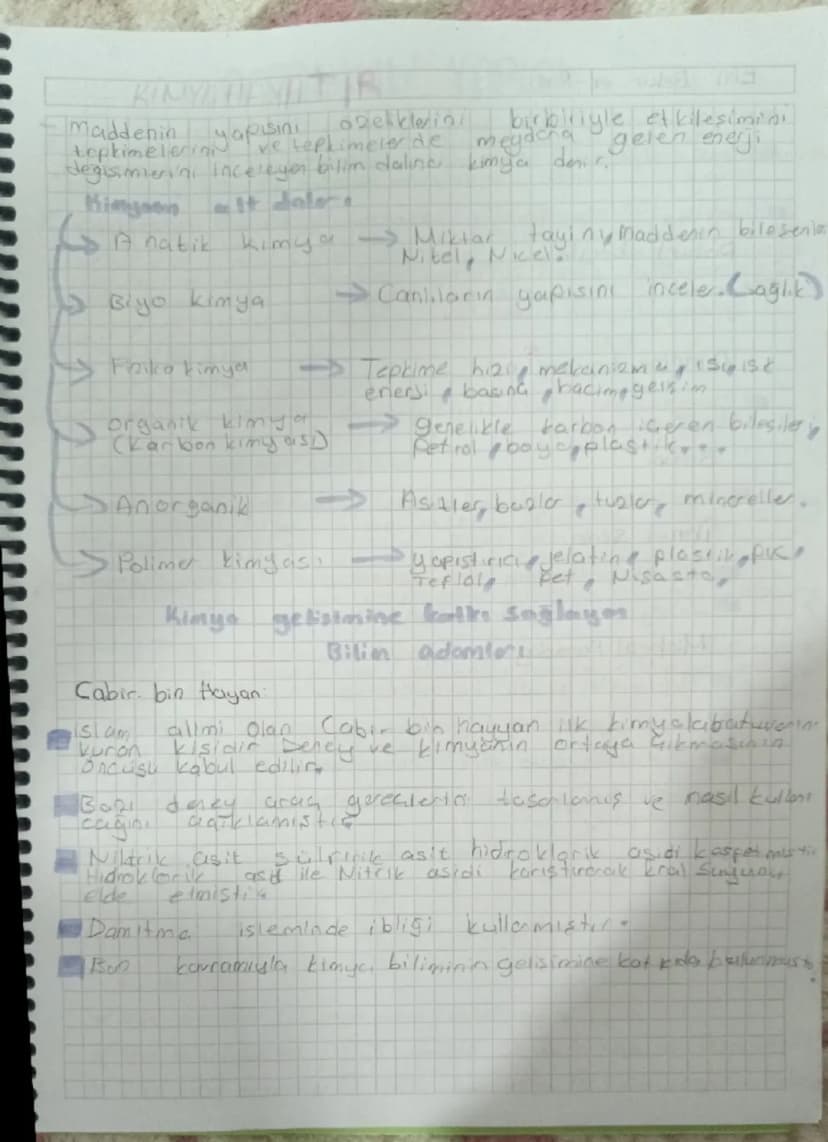 KİMYA HAYATTIR
Maddenin yapısını özeliklerini birbiriyle etkilesimini
tepkimelerini ve tepkimelerde meydana gelen enerji
degisimlerini inceleyen bilim dalına kimya denir.
Kimyanın alt dalları
Analitik kimya → Miktar tayini, Maddenin bilesenle
Nitel, Nicel.
Biyo kimya → Canlıların yapısını inceler. (saglık)
Fiziko kimya → Tepkime hızı, mekanizma, ısı, is
enerji, basınç, hacim, gelisim
organik kimya → genelikle karbon içeren bilesiler,
(Karbon kimyası) Petrol, boya, plastik...
Anorganik → Asitler, bazlar, tuzlar, mineraller.
Polimer kimyası → yapıstırıcı, jelatin, plastik, puc,
Teflol, Pet, Nisasta,
Kimya gelisimine katkı saglayan
Bilim adamları
Cabir bin Hayan:
islam alimi olan Cabir bin hayyan ilk kimya labatuvarını
kuran kisidir Deney ve kimyanın ortaya çıkmasının
öncüsü kabul edilir.
Bazı deney araç gereclerini tasarlamıs ve nasıl kullanı
cagını açıklamıstır
Nitrik asit sülfirik asit hidroklorik asidi kesfetmistir
Hidroklorik asit ile Nitrik asidi karıstırarak kral suyunu
elde etmistir.
Damıtma isleminde ibligi kullanmıstır.
Baz kavramıyla kimya biliminin gelisimine katkıda bulunmustur.